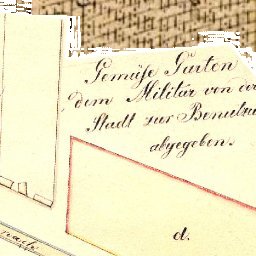 Gemüse Gärten
dem Militär von der
Stadt zur Benutzu
abgegeben.
d.
nach